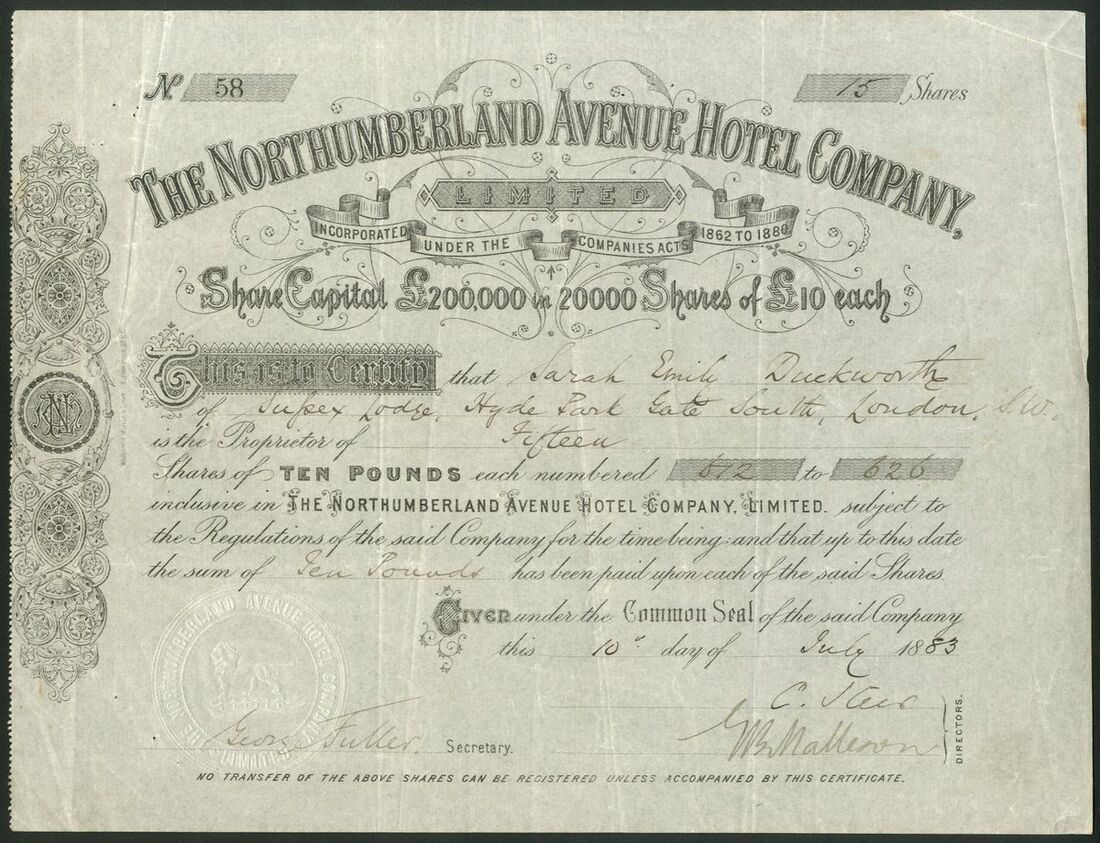 No. 58 15 Shares
THE NORTHUMBERLAND AVENUE HOTEL COMPANY,
LIMITED
INCORPORATED UNDER THE COMPANIES ACTS 1862 TO 1880
Share Capital £200,000 in 20000 Shares of £10 each
This is to Certify that Sarah Emily Duckworth
of Sussex Lodge, Hyde Park Gate South, London, S.W.
is the Proprietor of Fifteen
Shares of TEN POUNDS each numbered 612 to 626
inclusive in THE NORTHUMBERLAND AVENUE HOTEL COMPANY, LIMITED. subject to
the Regulations of the said Company for the time being; and that up to this date
the sum of Ten Pounds has been paid upon each of the said Shares
GIVEN under the Common Seal of the said Company
this 10th day of July 1883
THE NORTHUMBERLAND AVENUE HOTEL COMPANY LIMITED
C. Steer
George Fuller. Secretary.
DIRECTORS.
NO TRANSFER OF THE ABOVE SHARES CAN BE REGISTERED UNLESS ACCOMPANIED BY THIS CERTIFICATE.